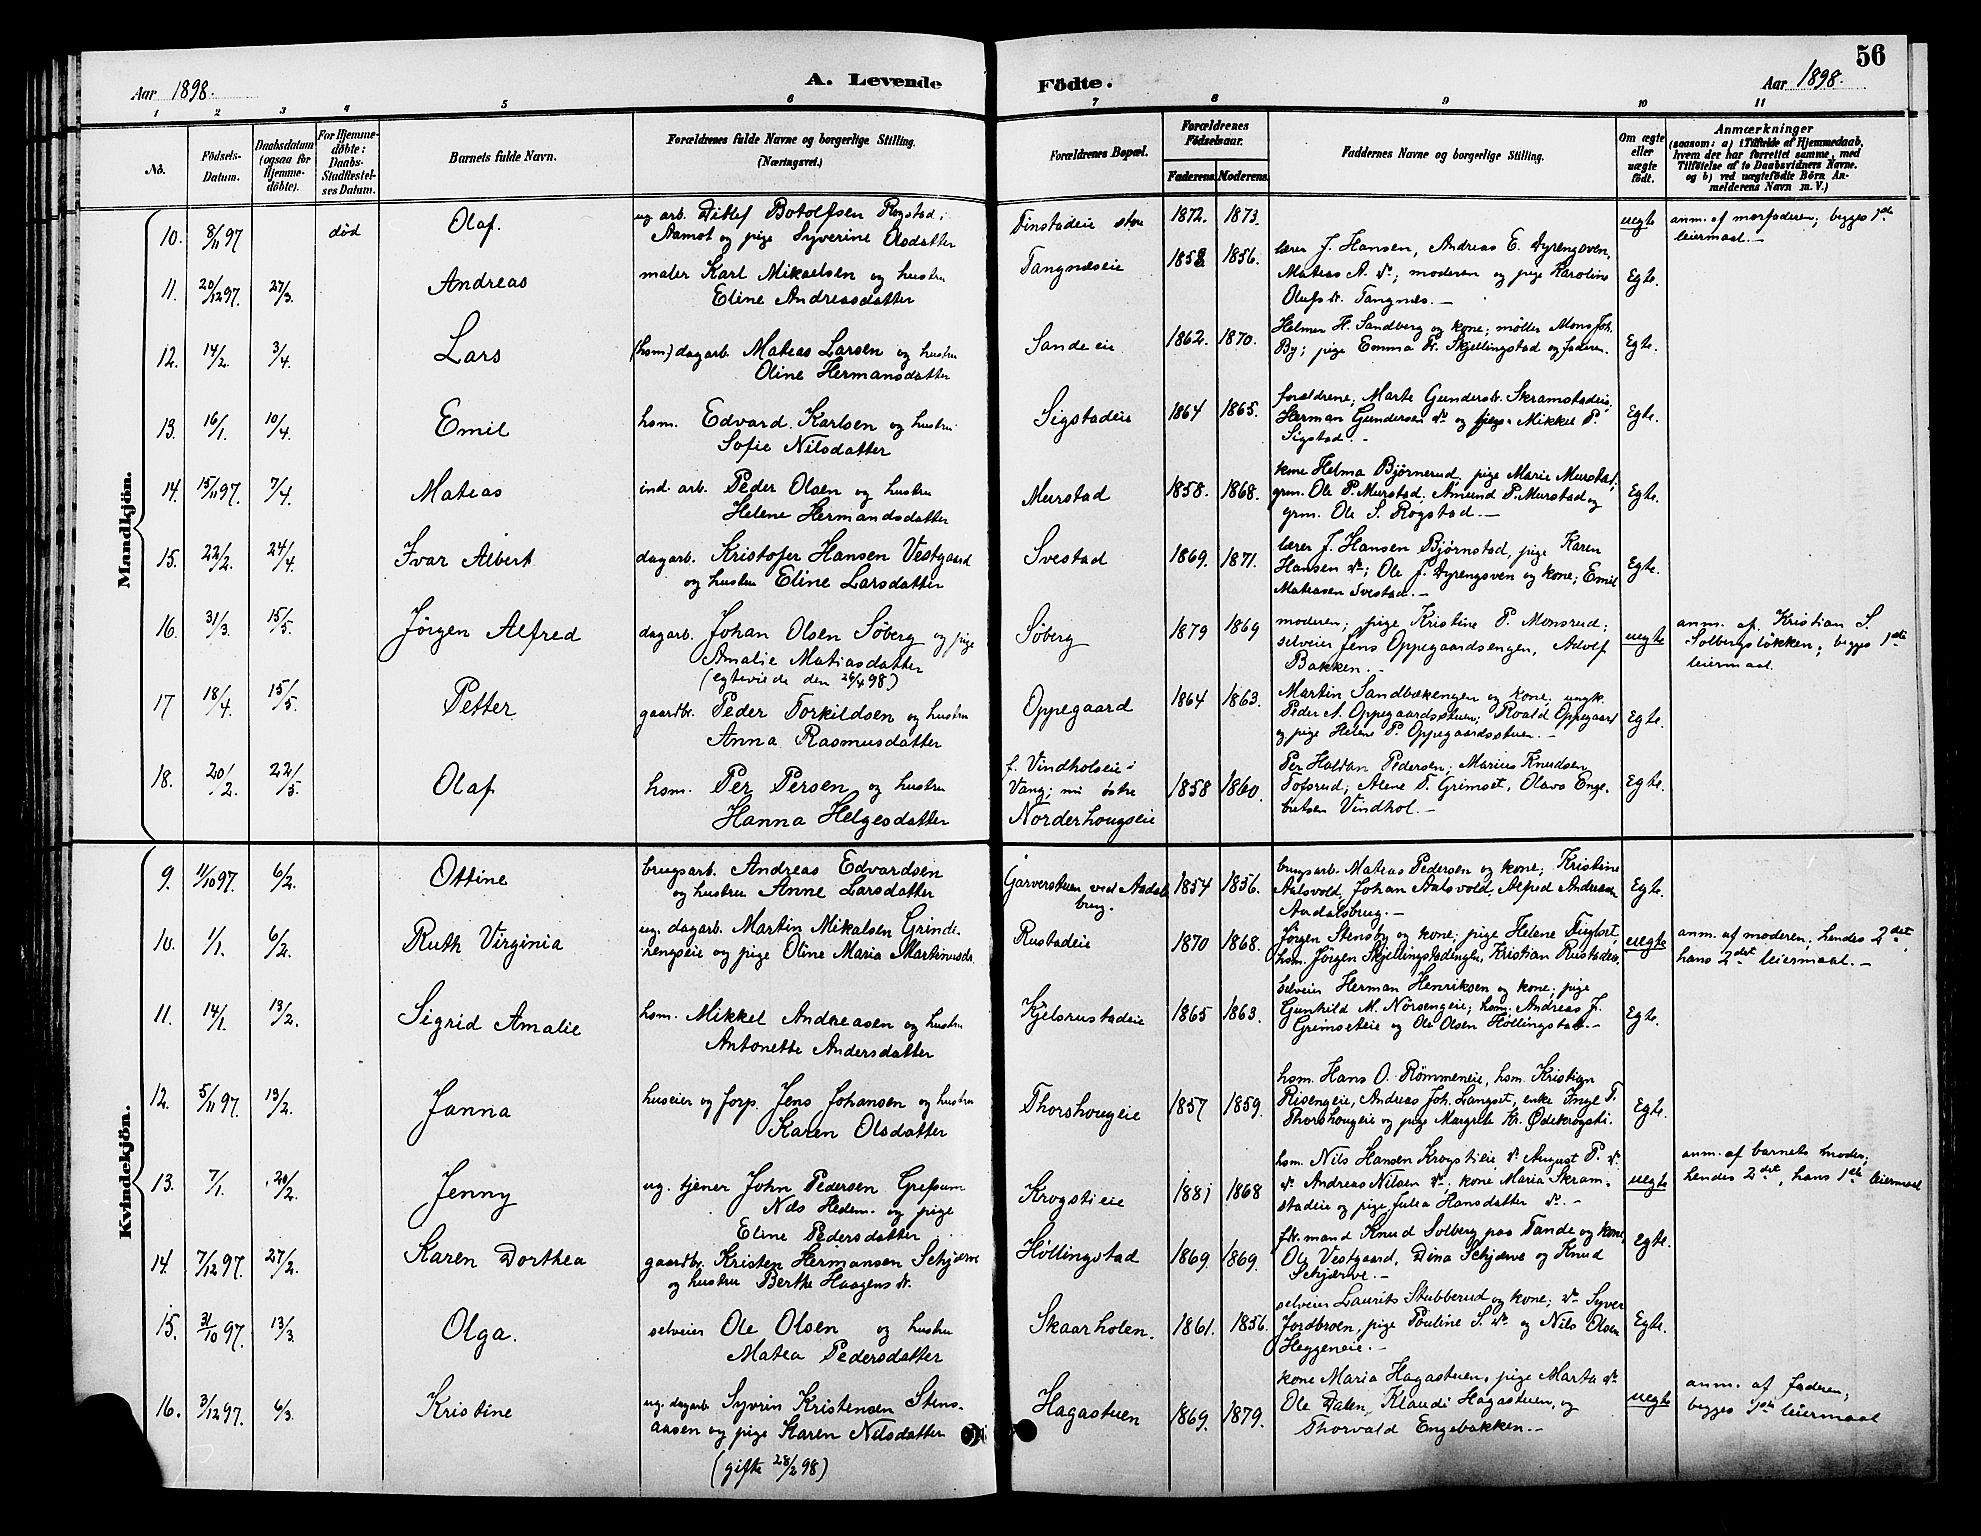 56
Aar 1898.
A. Levende Födte.
Aar 1898.
1 2 3 4 5 6 7 8 9 10 11
No.
Födsels-Datum.
Daabsdatum (ogsaa for Hjemmedöbte).
For Hjemmedöbte: Daabs-Stadfæstelses Datum.
Barnets fulde Navn.
Forældrenes fulde Navne og borgerlige Stilling. (Næringsvei.)
Forældrenes Bopæl.
Forældrenes Födselsaar.
Faderens. Moderens.
Faddernes Navne og borgerlige Stilling.
Om ægte eller uægte födt.
Anmærkninger
(saasom: a) i Tilfælde af Hjemmedaab, hvem der har forrettet samme, med Tilföielse af to Daabsvidners Navne. og b) ved uægtefödte Börn Anmelderens Navn m. V.)
Mandkjön.
10. 8/11 97 død Olaf. ug. arb. Ditlef Botolfsen Rogstad i
Aamot og pige Syverine Olsdatter
Finstadeie 1872. 1873. uegte
anm. af morfaderen; begges 1ste
leiermaal.
11. 20/12 97. 27/3. Andreas maler Karl Mikaelsen og hustru
Eline Andreasdatter
Tangnæseie 1858. 1856. lærer J. Hansen, Andreas E. Dyrengoven,
Mateas A. do; moderen og pige Karoline
Olufsdr. Tangnæs. Egte.
12. 14/2. 3/4. Lars (hsm) dagarb. Mateas Larsen og hustru
Oline Hermansdatter
Sandeeie 1862. 1870. Helmer H. Sandberg og kone; møller Mons Joh.
By; pige Emma Skjellingstad og faderen. Egte.
13. 16/1. 10/4. Emil hsm. Edvard Karlsen og hustru
Sofie Nilsdatter
Sigstadeie 1864 1865. forældrene; Marte Gundersdr. Skramstadeie,
Herman Gundersen do og Mikkel P.
Sigstad. Egte.
14. 15/11 97. 7/4. Mateas ind. arb. Peder Olsen og hustru
Helene Hermandsdatter
Murstad 1858. 1868. kone Helma Bjørnerud, pige Marie Murstad,
grm. Ole P. Murstad, Amund P. Murstad og
grm. Ole S. Rogstad. Egte.
15. 22/2. 24/4. Ivar Albert dagarb. Kristofer Hansen Vestgaard
og hustru Eline Larsdatter
Svestad 1869. 1871. lærer J. Hansen Bjørnstad, pige Karen
Hansen do; Ole J. Dyrengsven og kone; Emil
Mateasen Svestad. Egte.
16. 31/3. 15/5. Jørgen Alfred dagarb. Johan Olsen Søberg og pige
Amalie Matiasdatter
(egteviede den 26/4 98)
Søberg 1879 1869 moderen; pige Kristine P. Monsrud;
selveier Jens Oppegaardsengen, Adolf
Bakken. uegte
anm. af Kristian S.
Solbergsløkken; begges 1ste
leiermaal.
17 18/4. 15/5. Petter gaardbr. Peder Torkildsen og hustru
Anna Rasmusdatter
Oppegaard 1864 1863. Martin Sandbækengen og kone; ungk.
Peder A. Oppegaardsstuen; Roald Oppegaard
og pige Helene P. Oppegaardsstuen. Egte.
18. 20/2. 22/5. Olaf hsm. Per Persen og hustru
Hanna Helgesdatter
f. Vindholseie i
Vang; nu østre
Norderhougseie
1858 1860. Per Haldan Pedersen; Marius Knudsen
Tofsrud; Alene T. Grimset, Olava Enge-
bretsen Vindhol. Egte.
Kvindekjön.
9. 11/10 97. 6/2. Ottine brugsarb. Andreas Edvardsen
og hustru Anne Larsdatter
Garverstuen ved Aadals
brug. 1854 1856. brugsarb. Mateas Pedersen og kone; Kristine
Aalsvold, Johan Aalsvold, Alfred Andersen
Aadalsbrug. Egte.
10. 1/1. 6/2. Ruth Virginia ug. dagarb. Martin Mikalsen Grinde-
hengseie og pige Oline Maria Martinusdr.
Rustadeie 1870 1868. Jørgen Stensby og kone; pige Helene
hsm. Jørgen Skjellingstadengen, Kristian Rustadeie. uegte
anm. af moderen; hendes 2det,
hans 2det leiermaal.
11. 14/1. 13/2. Sigrid Amalie hsm. Mikkel Andreasen og hustru
Antonette Andersdatter
Kjelsrustadeie 1865 1863. selveier Herman Henriksen og kone; pige
Gunhild M. Nörsengeie; hsm. Andreas J.
Grimseteie og Ole Olsen Höllingstad. Egte.
12. 5/11 97. 13/2. Janna huseier og forp. Jens Johansen og hustru
Karen Olsdatter
Thorshougeie 1857 1859. hsm. Hans O. Römmeneie, hsm. Kristian
Risengeie, Andreas Joh. Langset, enke Inge T.
Thorshougeie og pige Margrete Kr. Ødekrogsti. Egte.
13. 7/1. 20/2. Jenny ug. tjener John Pedersen Grefsum
Nds Hedem. og pige
Eline Pedersdatter
Krogstieie 1881 1868 hsm. Nils Hansen Krogstieie, do August P. do
do Andreas Nilsen do. kone Maria Skram-
stadeie og pige Julea Hansdatter do. uegte
anm. af barnets moder;
hendes 2det, hans 1ste leiermaal
14. 7/12 97. 27/2. Karen Dorthea gaardbr. Kristen Hermansen Schjærve
og hustru Berthe Haagensdr.
Höllingstad 1869. 1869. mand Knud Solberg paa Tande og kone,
Ole Vestgaard, Dina Schjærve og Knud
Schjærve. egte.
15. 31/10 97. 13/3. Olga. selveier Ole Olsen og hustru
Matea Pedersdatter
Skaarholen. 1861. 1856. selveier Laurits Stubberud og kone; do Syver
Jordbroen, pige Pouline S. do og Nils Olsen
Heggeneie. Egte.
16. 3/12 97. 6/3. Kristine ug. dagarb. Syvrin Kristensen Stens-
aasen og pige Karen Nilsdatter
(gifte 28/2 98)
Hagastuen 1869. 1879. kone Maria Hagastuen, pige Marta do
Ole Dalen, Klaudi Hagastuen, og
Thorvald Engebakken. uegte
anm. af faderen;
begges 1ste leiermaal